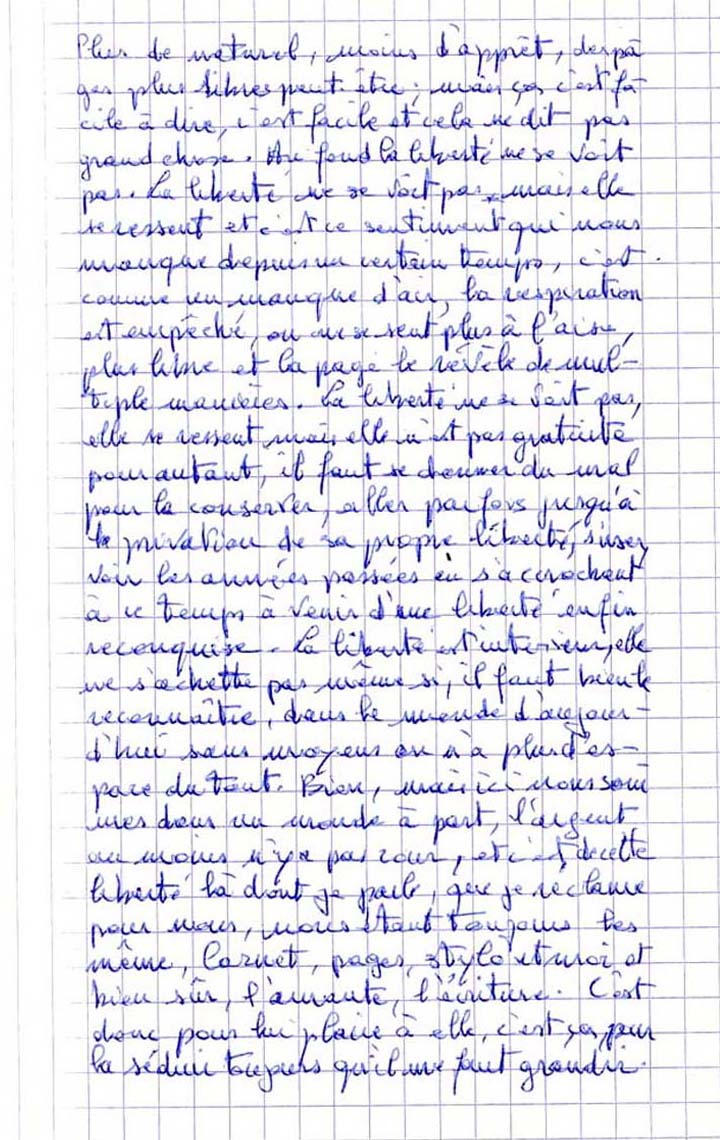 Plus de naturel, moins d'apprêt, des pa
ges plus libres peut-être ; mais ça c'est fa
cile à dire, c'est facile et cela ne dit pas
grand chose. Au fond la liberté ne se voit
pas. La liberté ne se voit pas, mais elle
se ressent et c'est ce sentiment qui nous
manque depuis un certain temps, c'est
comme un manque d'air, la respiration
est empêché, on ne se sent plus à l'aise,
plus libre et la page le révèle de mul-
tiple manières. La liberté ne se voit pas,
elle se ressent mais elle n'est pas gratuite
pour autant, il faut se donner du mal
pour la conserver, aller parfois jusqu'à
la privation de sa propre liberté,
voir les années passées en s'accrochant
à ce temps à venir d'une liberté enfin
reconquise. La liberté est interieur, elle
ne s'achette pas même si, il faut bien le
reconnaître, dans le monde d'aujour-
d'hui sans moyens on n'a plus d'es-
pace du tout. Bien, mais ici nous som
mes dans un monde à part, l'argent
au moins n'y a pas cour, et c'est de cette
liberté là dont je parle, que je réclame
pour nous, nous étant toujours les
même, Carnet, pages, stylo et moi et
bien sûr, l'amante, l'écriture. C'est
donc pour lui plaire à elle, c'est ça, pour
la séduire toujours qu'il me faut grandir.